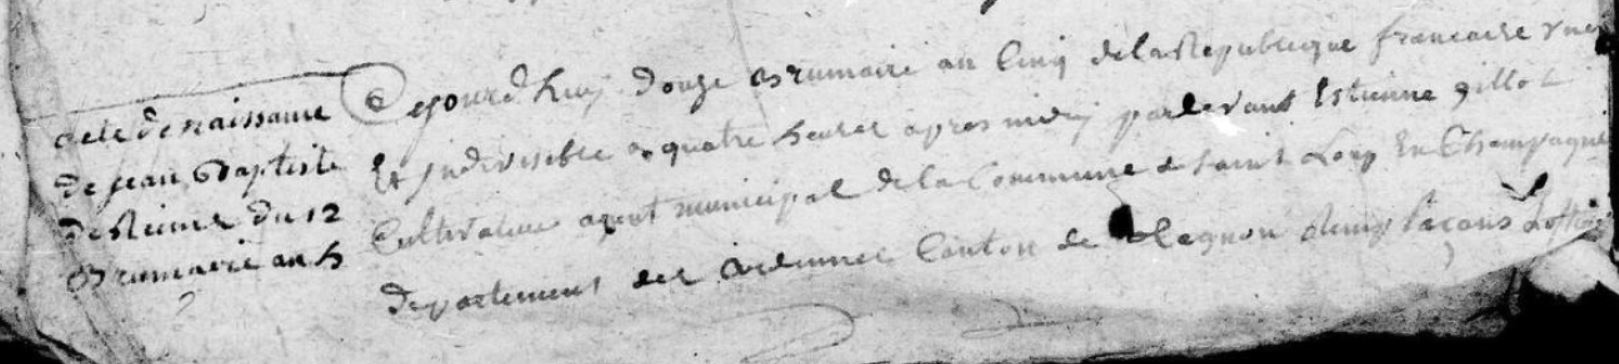 acte de naissance
de jean Baptiste
du 12
Brumaire an 5
Cejourd'huy douze Brumaire an Cinq de la Republique francaise une
Et Indivisible a quatre heures apres midy pardevant Estienne gillot
Cultivateur agent municipal de la Commune de saint Loup En Champagne
departement des Ardennes Canton de